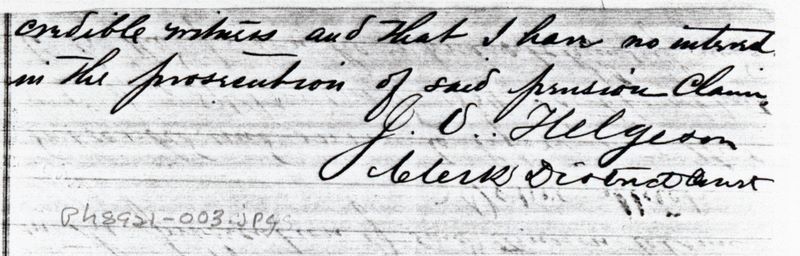 credible witness and that I have no interest
in the prosecution of said pension Claim,
J. O. Helgeson
Clerk District Court
Ph8921-003.jpg